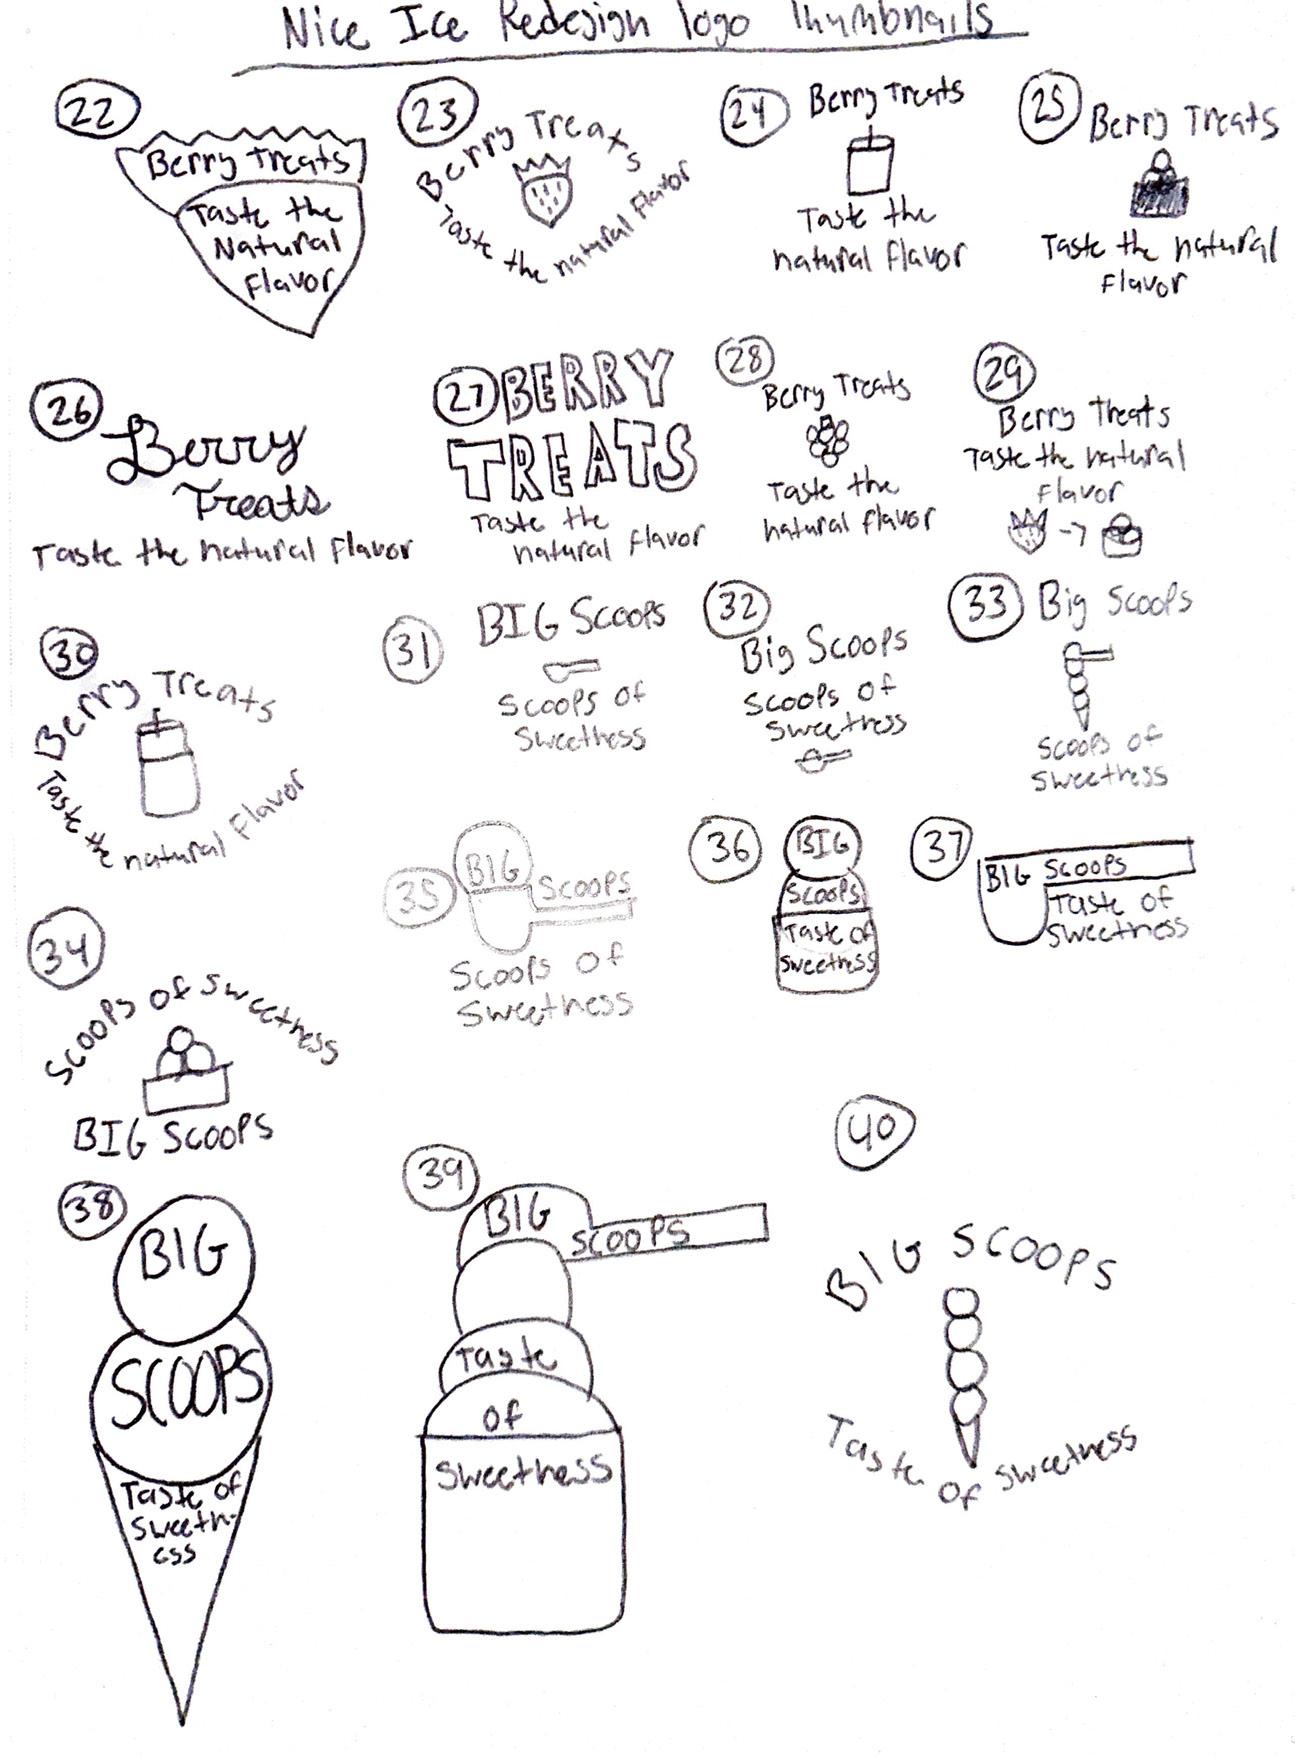 Nice Ice Redesign logo Thumbnails
22
Berry Treats
Taste the
Natural
Flavor
23
Berry Treats
Taste the natural Flavor
24
Berry Treats
Taste the
natural Flavor
25
Berry Treats
Taste the natural
Flavor
26
Berry
Treats
Taste the natural Flavor
27
BERRY
TREATS
Taste the
natural flavor
28
Berry Treats
Taste the
natural flavor
29
Berry Treats
Taste the natural
Flavor
30
Berry Treats
Taste the natural Flavor
31
BIG Scoops
Scoops of
Sweetness
32
Big Scoops
Scoops of
Sweetness
33
Big Scoops
Scoops of
Sweetness
34
Scoops of Sweetness
BIG SCOOPS
35
BIG
Scoops
Scoops of
Sweetness
36
BIG
Scoops
Taste of
Sweetness
37
BIG Scoops
Taste of
Sweetness
38
BIG
SCOOPS
Taste of
Sweetn-
ess
39
BIG
SCOOPS
Taste
of
Sweetness
40
BIG SCOOPS
Taste of Sweetness